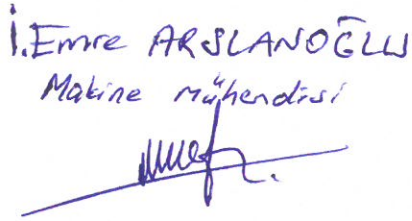 İ.Emre ARSLANOĞLU
Makine Mühendisi